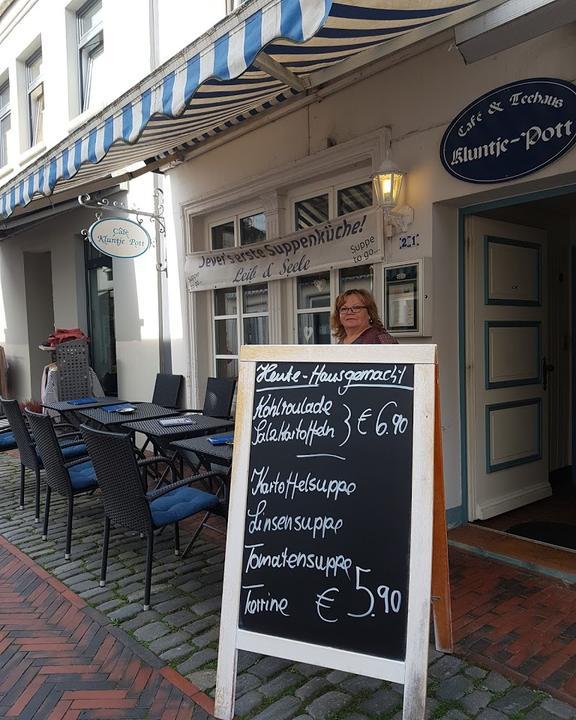 Café & Teehaus
Kluntje-Pott
Café
Kluntje Pott
Jever's erste Suppenküche!
Leib & Seele
Suppe
to go...
201
Heute-Hausgemacht
Kohlroulade
Salzkartoffeln } € 6.90
Kartoffelsuppe
Linsensuppe
Tomatensuppe
Terrine € 5.90